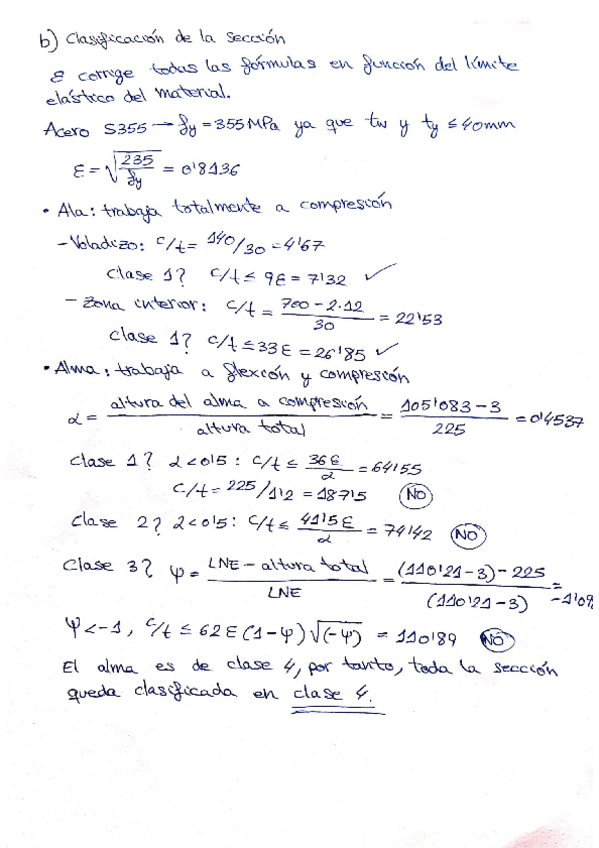 b) Clasificación de la sección
ε corrige todas las fórmulas en función del límite
elástico del material.
Acero S355 → fy = 355 MPa ya que tw y ty ≤ 40mm
ε = √(235/fy) = 0'8136
• Ala: trabaja totalmente a compresión
- Voladizo: c/t = 140/30 = 4'67
Clase 1? c/t ≤ 9ε = 7'32 ✓
- Zona interior: c/t = (700 - 2·12)/30 = 22'53
Clase 1? c/t ≤ 33ε = 26'85 ✓
• Alma: trabaja a flexión y compresión
α = altura del alma a compresión / altura total = (105'083 - 3)/225 = 0'4537
Clase 1? α < 0'5: c/t ≤ 36ε/α = 64'55
c/t = 225/1'2 = 187'5 (NO)
Clase 2? α < 0'5: c/t ≤ 41'5ε/α = 74'42 (NO)
Clase 3? ψ = (LNE - altura total)/LNE = ((110'21 - 3) - 225)/(110'21 - 3) = -1'09
ψ < -1, c/t ≤ 62ε(1-ψ)√(-ψ) = 110'89 (NO)
El alma es de clase 4, por tanto, toda la sección
queda clasificada en clase 4.